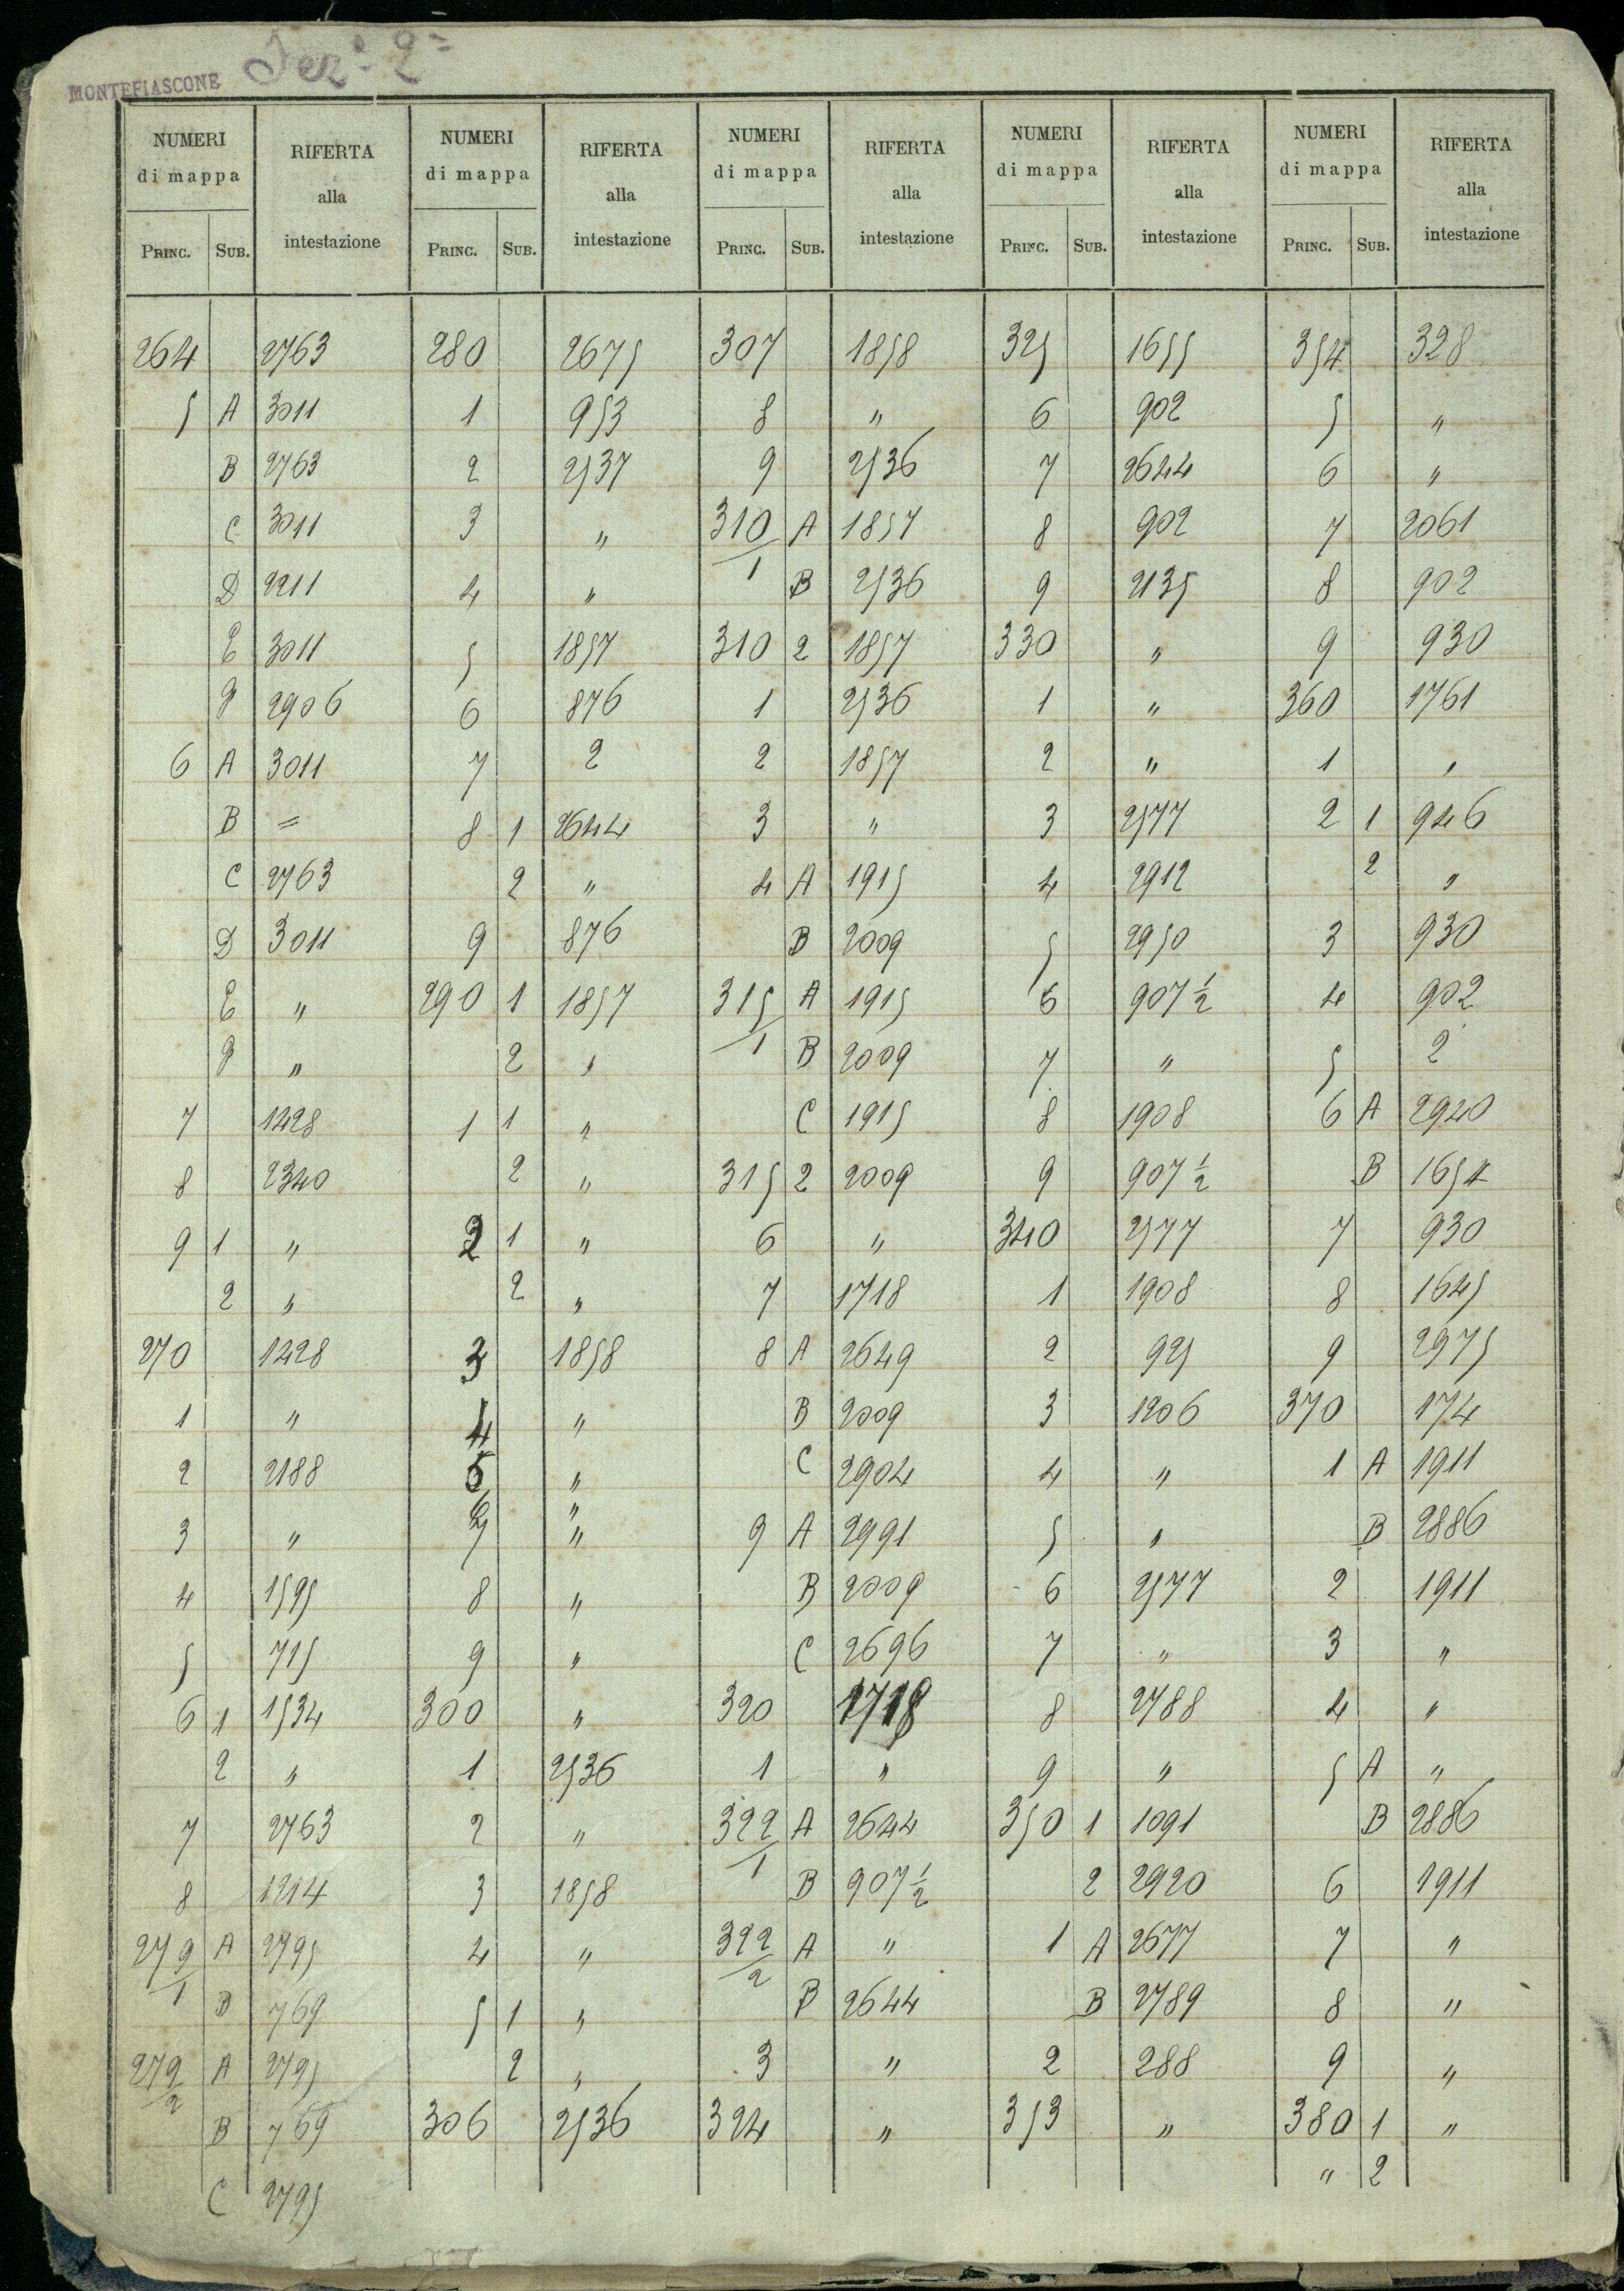 MONTEFIASCONE Sez.e 2a
NUMERI di mappa | RIFERTA alla intestazione | NUMERI di mappa | RIFERTA alla intestazione | NUMERI di mappa | RIFERTA alla intestazione | NUMERI di mappa | RIFERTA alla intestazione | NUMERI di mappa | RIFERTA alla intestazione
PRINC. | SUB. | PRINC. | SUB. | PRINC. | SUB. | PRINC. | SUB. | PRINC. | SUB.
264 2763 280 2675 307 1858 325 1655 354 328
5 A 3011 1 953 8 " 6 902 5 "
B 2763 2 2537 9 2536 7 2644 6 "
C 3011 3 " 310/1 A 1857 8 902 7 2061
D 2211 4 " B 2536 9 2135 8 902
E 3011 5 1857 310 2 1857 330 " 9 930
2906 6 876 1 2536 1 " 360 1761
6 A 3011 7 2 2 1857 2 " 1 "
B = 8 1 2644 3 " 3 2577 2 1 946
C 2763 2 " 4 A 1915 4 2912 2 "
D 3011 9 876 B 2009 5 2950 3 930
E " 290 1 1857 315/1 A 1915 6 907 1/2 4 902
" 2 " B 2009 7 " 5 2
7 1428 1 1 " C 1915 8 1908 6 A 2940
8 2340 2 " 315 2 2009 9 907 1/2 B 1654
9 1 " 2 1 " 6 " 340 2577 7 930
2 " 2 " 7 1718 1 1908 8 1645
270 1428 3 1858 8 A 2649 2 925 9 2975
1 " 4 " B 2009 3 1206 370 174
2 2188 5 " C 2904 4 " 1 A 1911
6 "
3 " 7 " 9 A 2991 5 " B 2886
4 1595 8 " B 2009 6 2577 2 1911
5 715 9 " C 2696 7 " 3 "
6 1 1534 300 " 320 1718 8 2788 4 "
2 " 1 2536 1 " 9 " 5 A "
7 2763 2 " 322/1 A 2644 350 1 1091 B 2886
8 1214 3 1858 B 907 1/2 2 2920 6 1911
279/1 A 2795 4 " 322/2 A " 1 A 2677 7 "
B 769 5 1 " B 2644 B 2789 8 "
279/2 A 2795 2 " 3 " 2 288 9 "
B 769 306 2536 324 " 353 " 380 1 "
C 2795 " 2